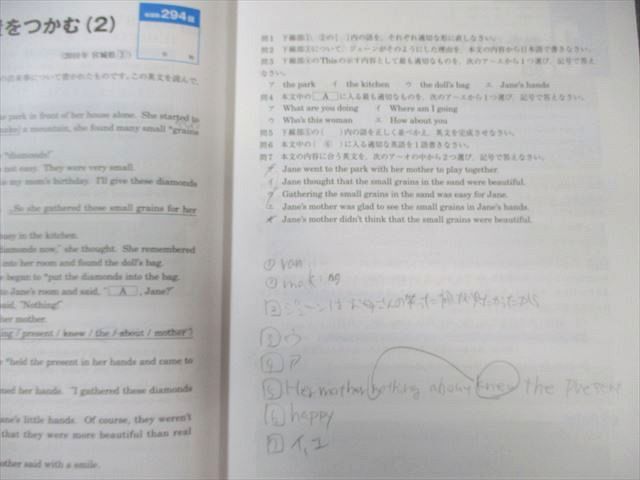 をつかむ（2）
294
（2010年 宮城県）
の出来事について書かれたものです。この英文を読んで、
park in front of her house alone. She started to
a mountain, she found many small "grains
"diamonds!"
not easy. They were very small.
is my mom's birthday. I'll give these diamonds
So she gathered those small grains for her
busy in the kitchen.
diamonds now," she thought. She remembered
into her room and found the doll's bag.
began to "put the diamonds into the bag.
to Jane's room and said, " A , Jane?"
said, "Nothing!"
her mother.
present / knew / the / about / mother
"held the present in her hands and came to
her hands. "I gathered these diamonds
Jane's little hands. Of course, they weren't
that they were more beautiful than real
mother said with a smile.
問1 下線部①、②の（ ）内の語を、それぞれ適切な形に直しなさい。
問2 下線部③について、ジェーンがそのようにした理由を、本文の内容から日本語で書きなさい。
問3 下線部④のThisの示す内容として最も適切なものを、次のア～エから1つ選び、記号で答えなさい。
ア the park イ the kitchen ウ the doll's bag エ Jane's hands
問4 本文中の A に入る最も適切なものを、次のア～エから1つ選び、記号で答えなさい。
ア What are you doing イ Where am I going
ウ Who's this woman エ How about you
問5 下線部⑤の（ ）内の語を正しく並べかえ、英文を完成させなさい。
問6 本文中の（ ⑥ ）に入る適切な英語を1語書きなさい。
問7 本文の内容に合う英文を、次のア～オの中から2つ選び、記号で答えなさい。
ア Jane went to the park with her mother to play together.
イ Jane thought that the small grains in the sand were beautiful.
ウ Gathering the small grains in the sand was easy for Jane.
エ Jane's mother was glad to see the small grains in Jane's hands.
オ Jane's mother didn't think that the small grains were beautiful.
① ran
② making
2 ジェーンはお母さんの
3 ウ
4 ア
5 Her mother nothing about knew the present
6 happy
7 イ、エ